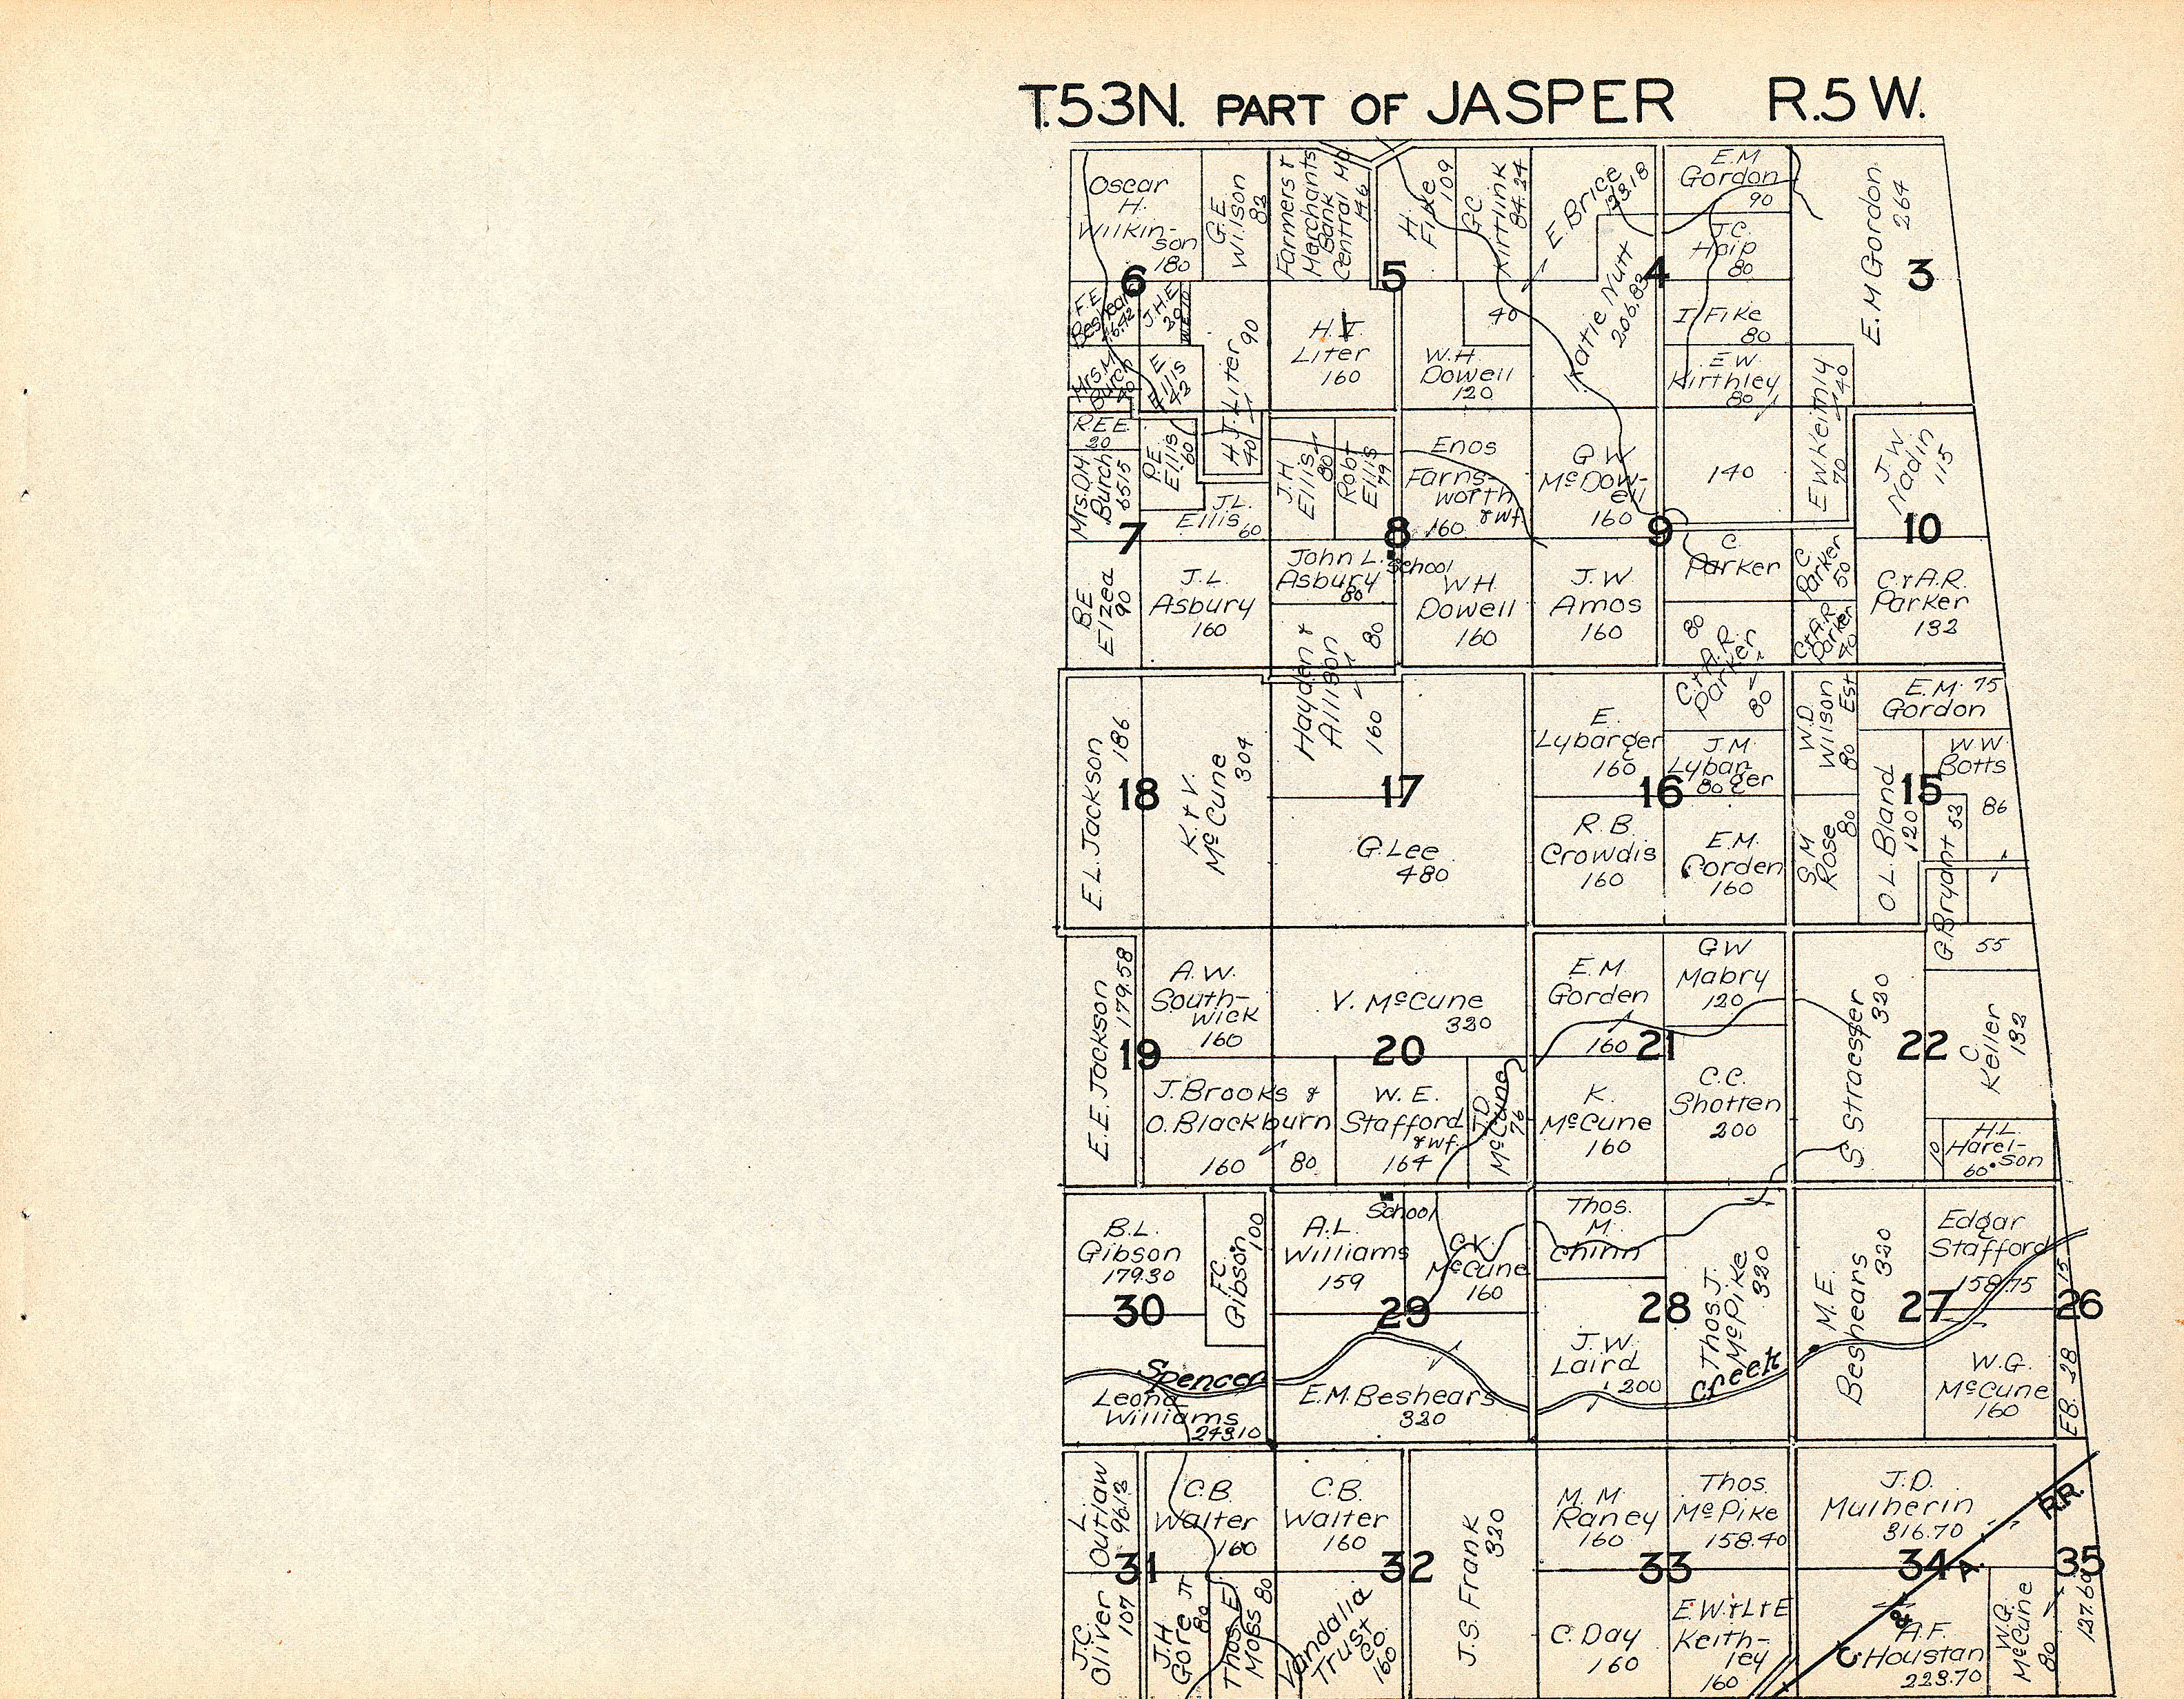 T.53N. PART OF JASPER R.5W.
Oscar
H.
Wilkin-
son
180
G.E.
Wilson
82
Farmers &
Merchants
Bank
Central Mo.
146
H.
Fike
109
G.C.
Kirtlink
84.24
E. Brice
123.18
E.M
Gordon
90
J.C.
Haip
80
E. M Gordon
264
6
5
4
3
F.E.
Beshears
J.H.E.
20
Mrs. M
Burch
40
E.
Ellis
42
H.J. Liter
90
40
H. T
Liter
160
40
W.H.
Dowell
120
Katie Nutt
206.83
I Fike
80
E.W.
Kirthley
80
E W Keithly
40
70
R.E.E.
20
Mrs. D.M
Burch
65 15
P.E.
Ellis
60
J.L.
Ellis
60
J.H.
Ellis
80
Robt
Ellis
79
Enos
Farns-
worth
& wf.
160
G W
McDow-
ell
160
140
J.W
Nadin
115
7
8
9
10
B.E
Elzea
90
J.L.
Asbury
160
John L.
Asbury
80
School
W.H.
Dowell
160
J.W
Amos
160
C.
Parker
80
C
Parker
50
C.&A.R.
Parker
40
C.&A.R.
Parker
132
Hayden &
Allison
80
160
C.&A.R.
Parker
80
E.L. Jackson
186
K. & V.
McCune
304
G. Lee
480
E.
Lybarger
160
J.M.
Lybar-
ger
80
R.B.
Crowdis
160
E.M.
Gorden
160
W.D.
Wilson
Est
80
S.M
Rose
80
E.M. 75
Gordon
O.L. Bland
120
W.W.
Botts
86
G. Bryant
53
55
18
17
16
15
E.E. Jackson
179.58
A.W.
South-
wick
160
V. McCune
320
E.M.
Gorden
160
GW
Mabry
120
S. Straesser
320
C.
Keller
132
19
20
21
22
J. Brooks &
O. Blackburn
160
80
W. E.
Stafford
& wf.
164
J.D.
McCune
76
K.
McCune
160
C.C.
Shotten
200
H.L.
Harel-
son
60
10
B.L.
Gibson
179.30
F.C.
Gibson
100
A.L.
Williams
159
School
C.K.
McCune
160
Thos.
M.
Chinn
Thos. J.
McPike
320
M.E.
Beshears
320
Edgar
Stafford
158.75
15
30
29
28
27
26
Spencer
Creek
Leona
Williams
243.10
E.M. Beshears
320
J.W.
Laird
200
W.G.
McCune
160
E.B. 28
L.
Outlaw
96.12
C.B.
Walter
160
C.B.
Walter
160
J.S. Frank
320
M. M
Raney
160
Thos.
McPike
158.40
J.D.
Mulherin
316.70
R.R.
31
32
33
34
35
J.C.
Oliver
107
J.H.
Gore Jr
80
Thos. E.
Moss
80
Vandalia
Trust
Co.
160
C. Day
160
E.W.&L&E
Keith-
ley
160
C. & A.
A.F.
Houstan
223.70
W.G.
McCune
80
127.69